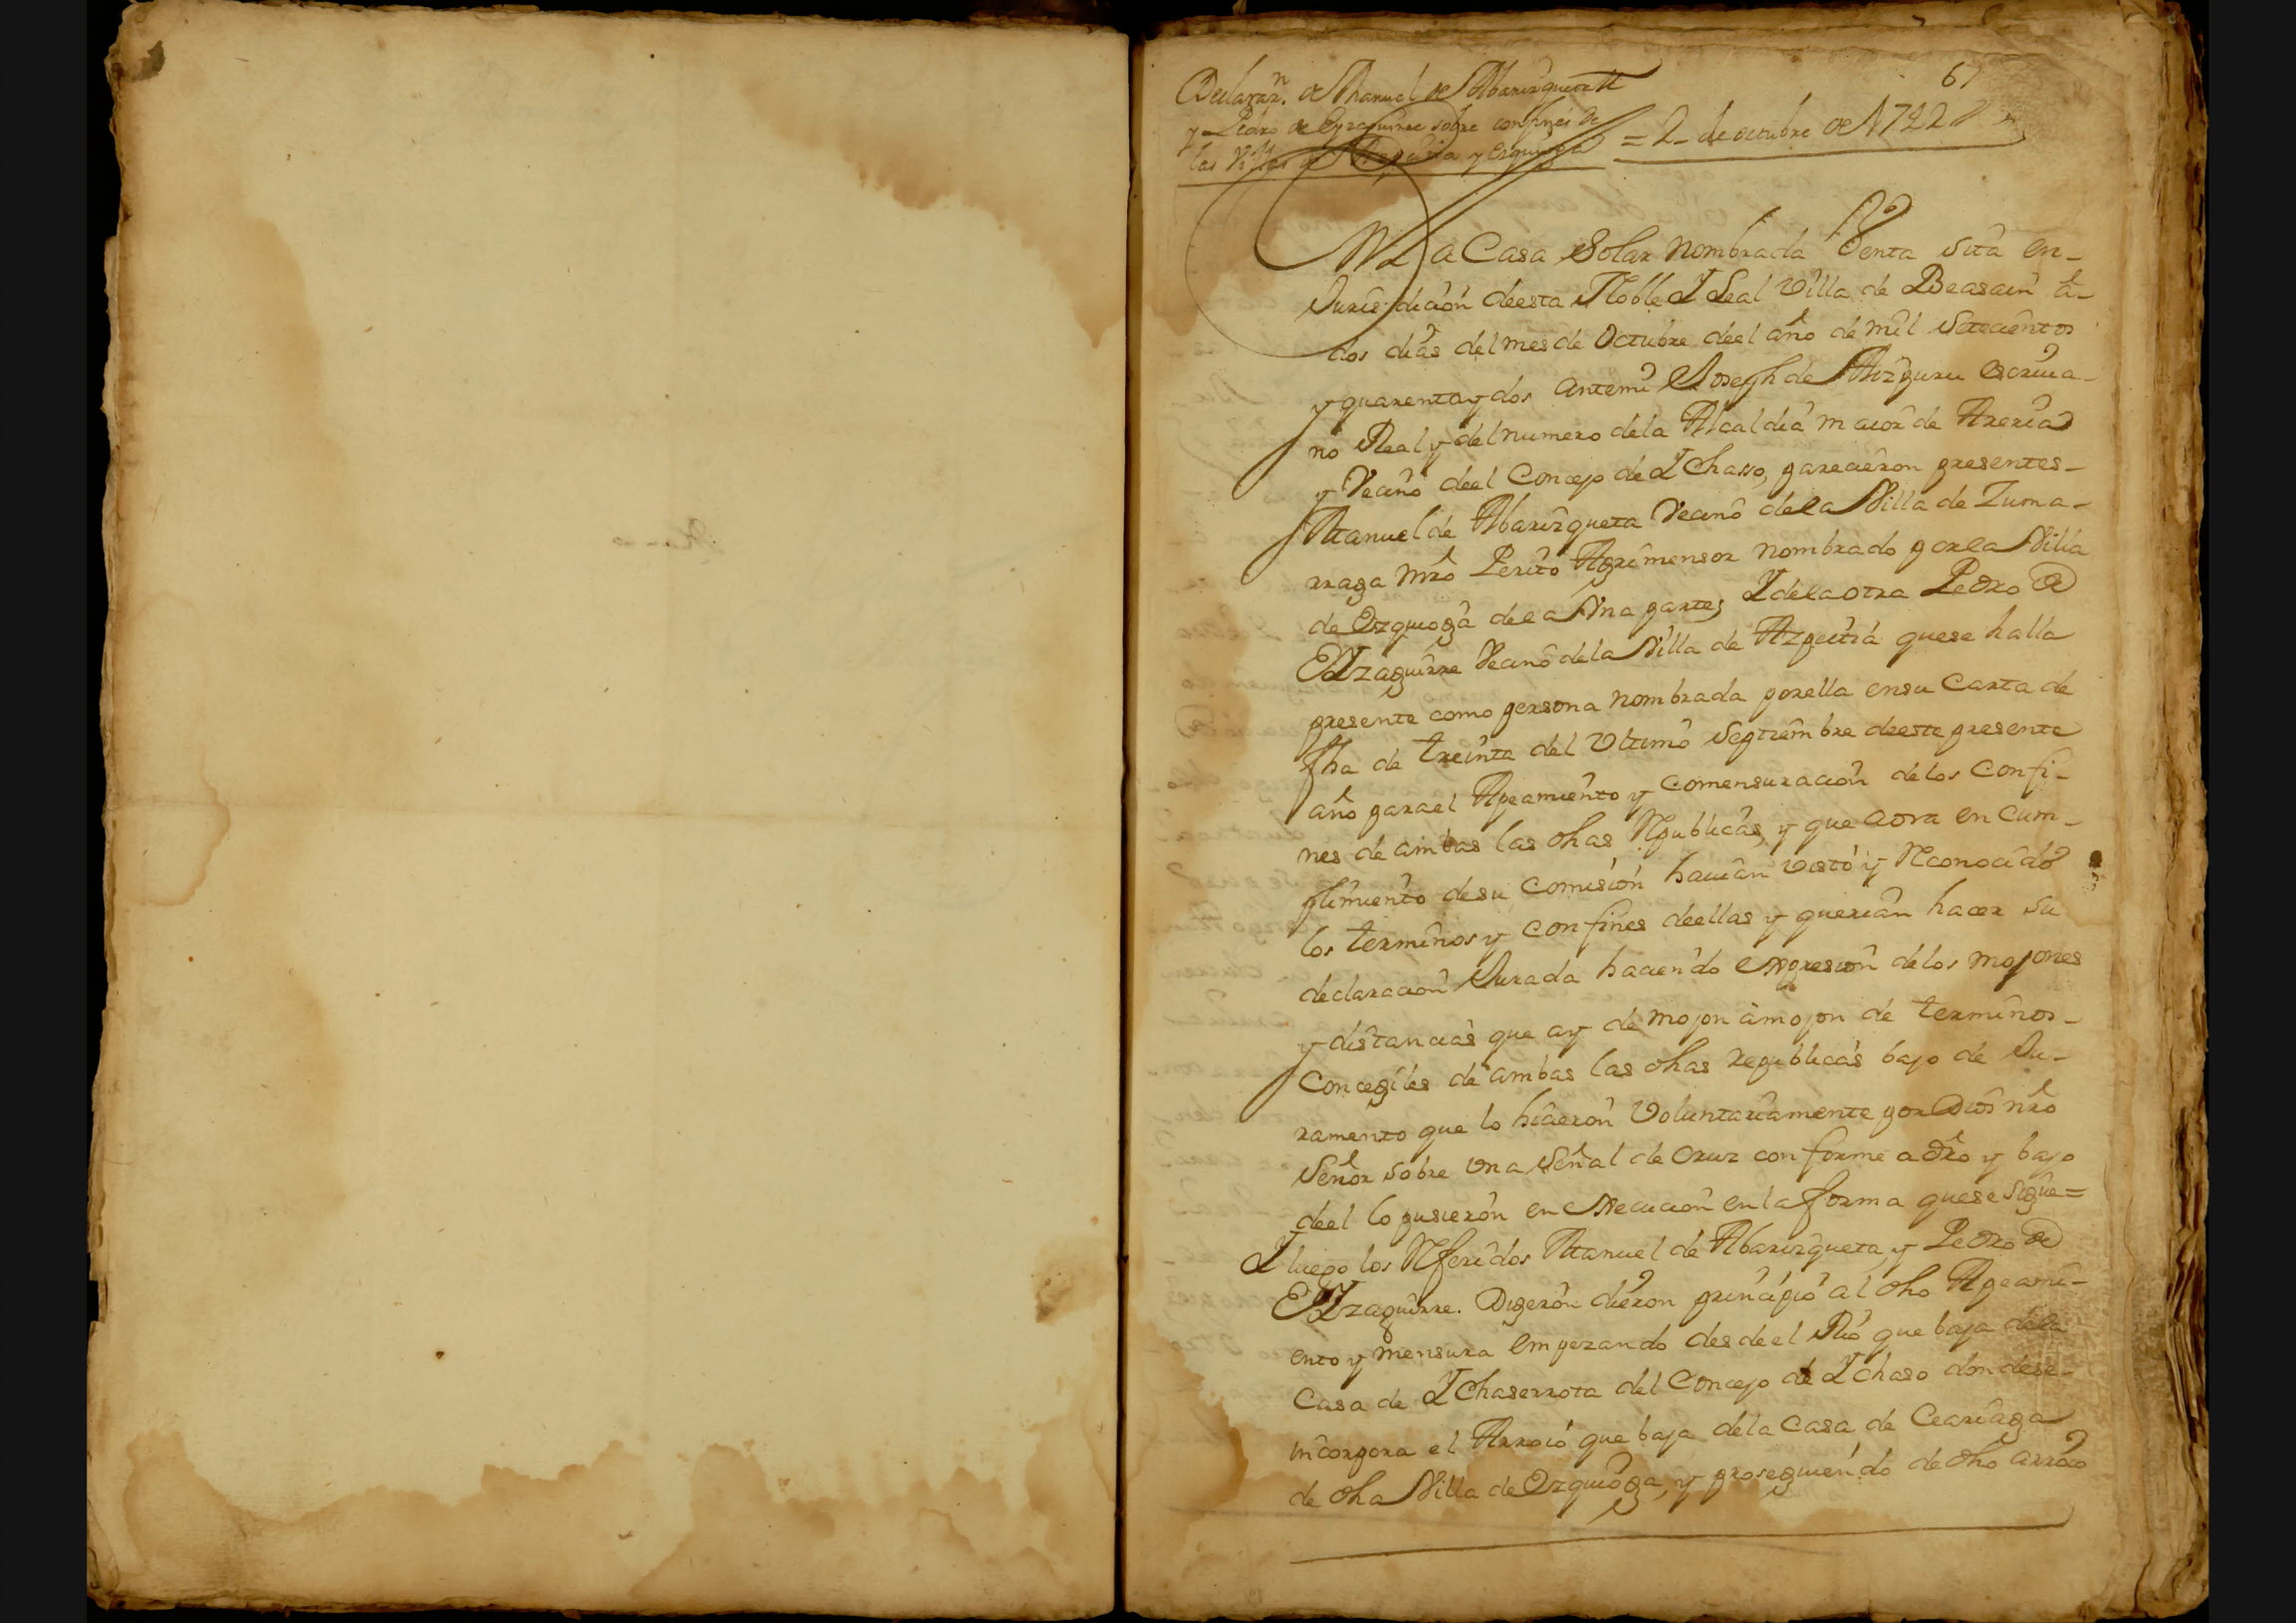 61
Declarazn. de Manuel de Abarizquetta
y Pedro de Eyzaguirre sobre confines de
las Villas de Azpeitia y Ezquioga
= 2 de octubre de 1742
En La Casa Solar nombrada Venta sita en-
Jurisdicion de esta Noble I Leal Villa de Beasain â
dos dias del mes de Octubre de el año de mil Setecientos
y quarenta y dos ante mi Joseph de Aizpuru escriua-
no Real y del numero de la Alcaldia maior de Areria
y Vecino de el Concejo de Ichasso, parecieron presentes-
Manuel de Abarizqueta Vecino de la Villa de Zuma-
rraga mro Perito Agrimensor nombrado por la Villa
de Ezquioga de la Vna parte, I de la otra Pedro de
EIzaguirre Vecino de la Villa de Azpeitia que se halla
presente como persona nombrada por ella en su Carta de
fha de treinta del Vltimo Septiembre de este presente
año para el Apeamiento y Comensuracion de los Confi-
nes de ambas las dhas Republicas, y que aora en Cum-
plimiento de su Comision hauian visto y Reconocido
los terminos y confines de ellas y querian hacer su
declaracion Jurada haciendo expresion de los mojones
y distancias que ay de mojon à mojon de terminos-
Concegiles de ambas las dhas republicas bajo de Ju-
ramento que lo hicieron Voluntariamente por Dios nro
Señor sobre vna Señal de Cruz conforme a dro y bajo
de el lo pusieron en execucion en la forma que se sigue=
I luego los Referidos Manuel de Abarizqueta, y Pedro de
EIzaguirre. Digeron dieron principio al dho Apeami-
ento y mensura empezando desde el Rio que baja de la
Casa de Ichaserrota del Concejo de Ichaso donde se-
incorpora el Arroio que baja de la Casa de Cearizga
de dha Villa de Ezquioga, y prosiguiendo de dho arroio